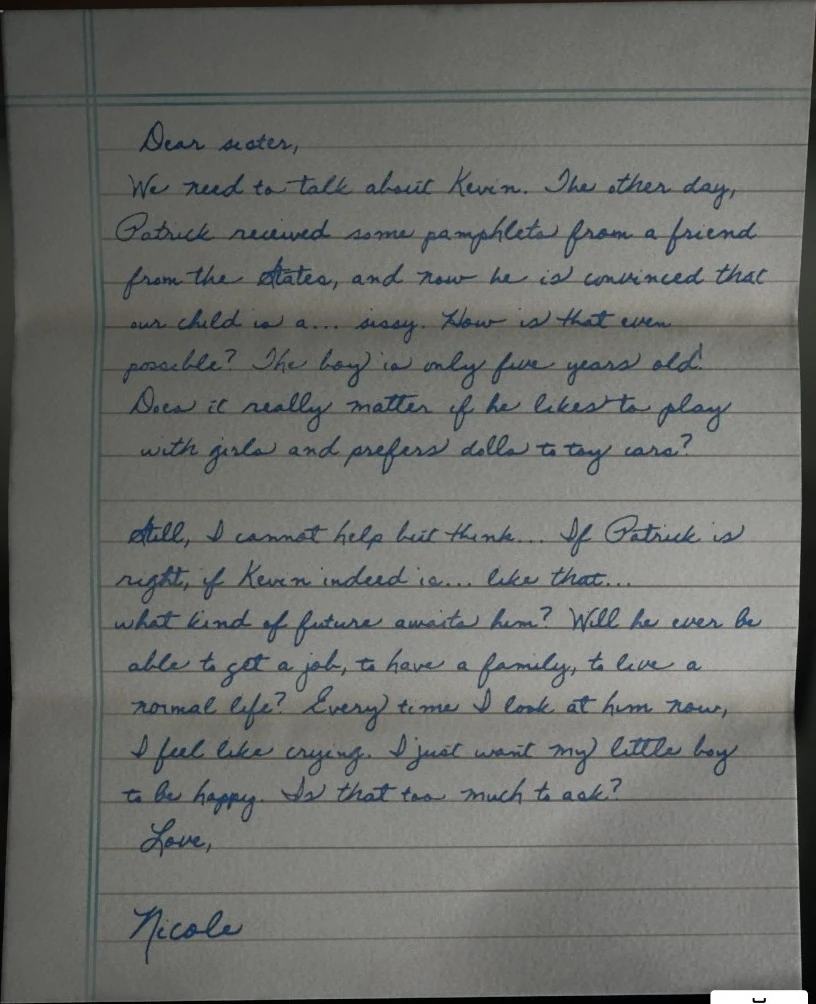 Dear sister,
We need to talk about Kevin. The other day,
Patrick received some pamphlets from a friend
from the States, and now he is convinced that
our child is a... sissy. How is that even
possible? The boy is only five years old!
Does it really matter if he likes to play
with girls and prefers dolls to toy cars?
Still, I cannot help but think... If Patrick is
right, if Kevin indeed is... like that...
what kind of future awaits him? Will he ever be
able to get a job, to have a family, to live a
normal life? Every time I look at him now,
I feel like crying. I just want my little boy
to be happy. Is that too much to ask?
Love,
Nicole